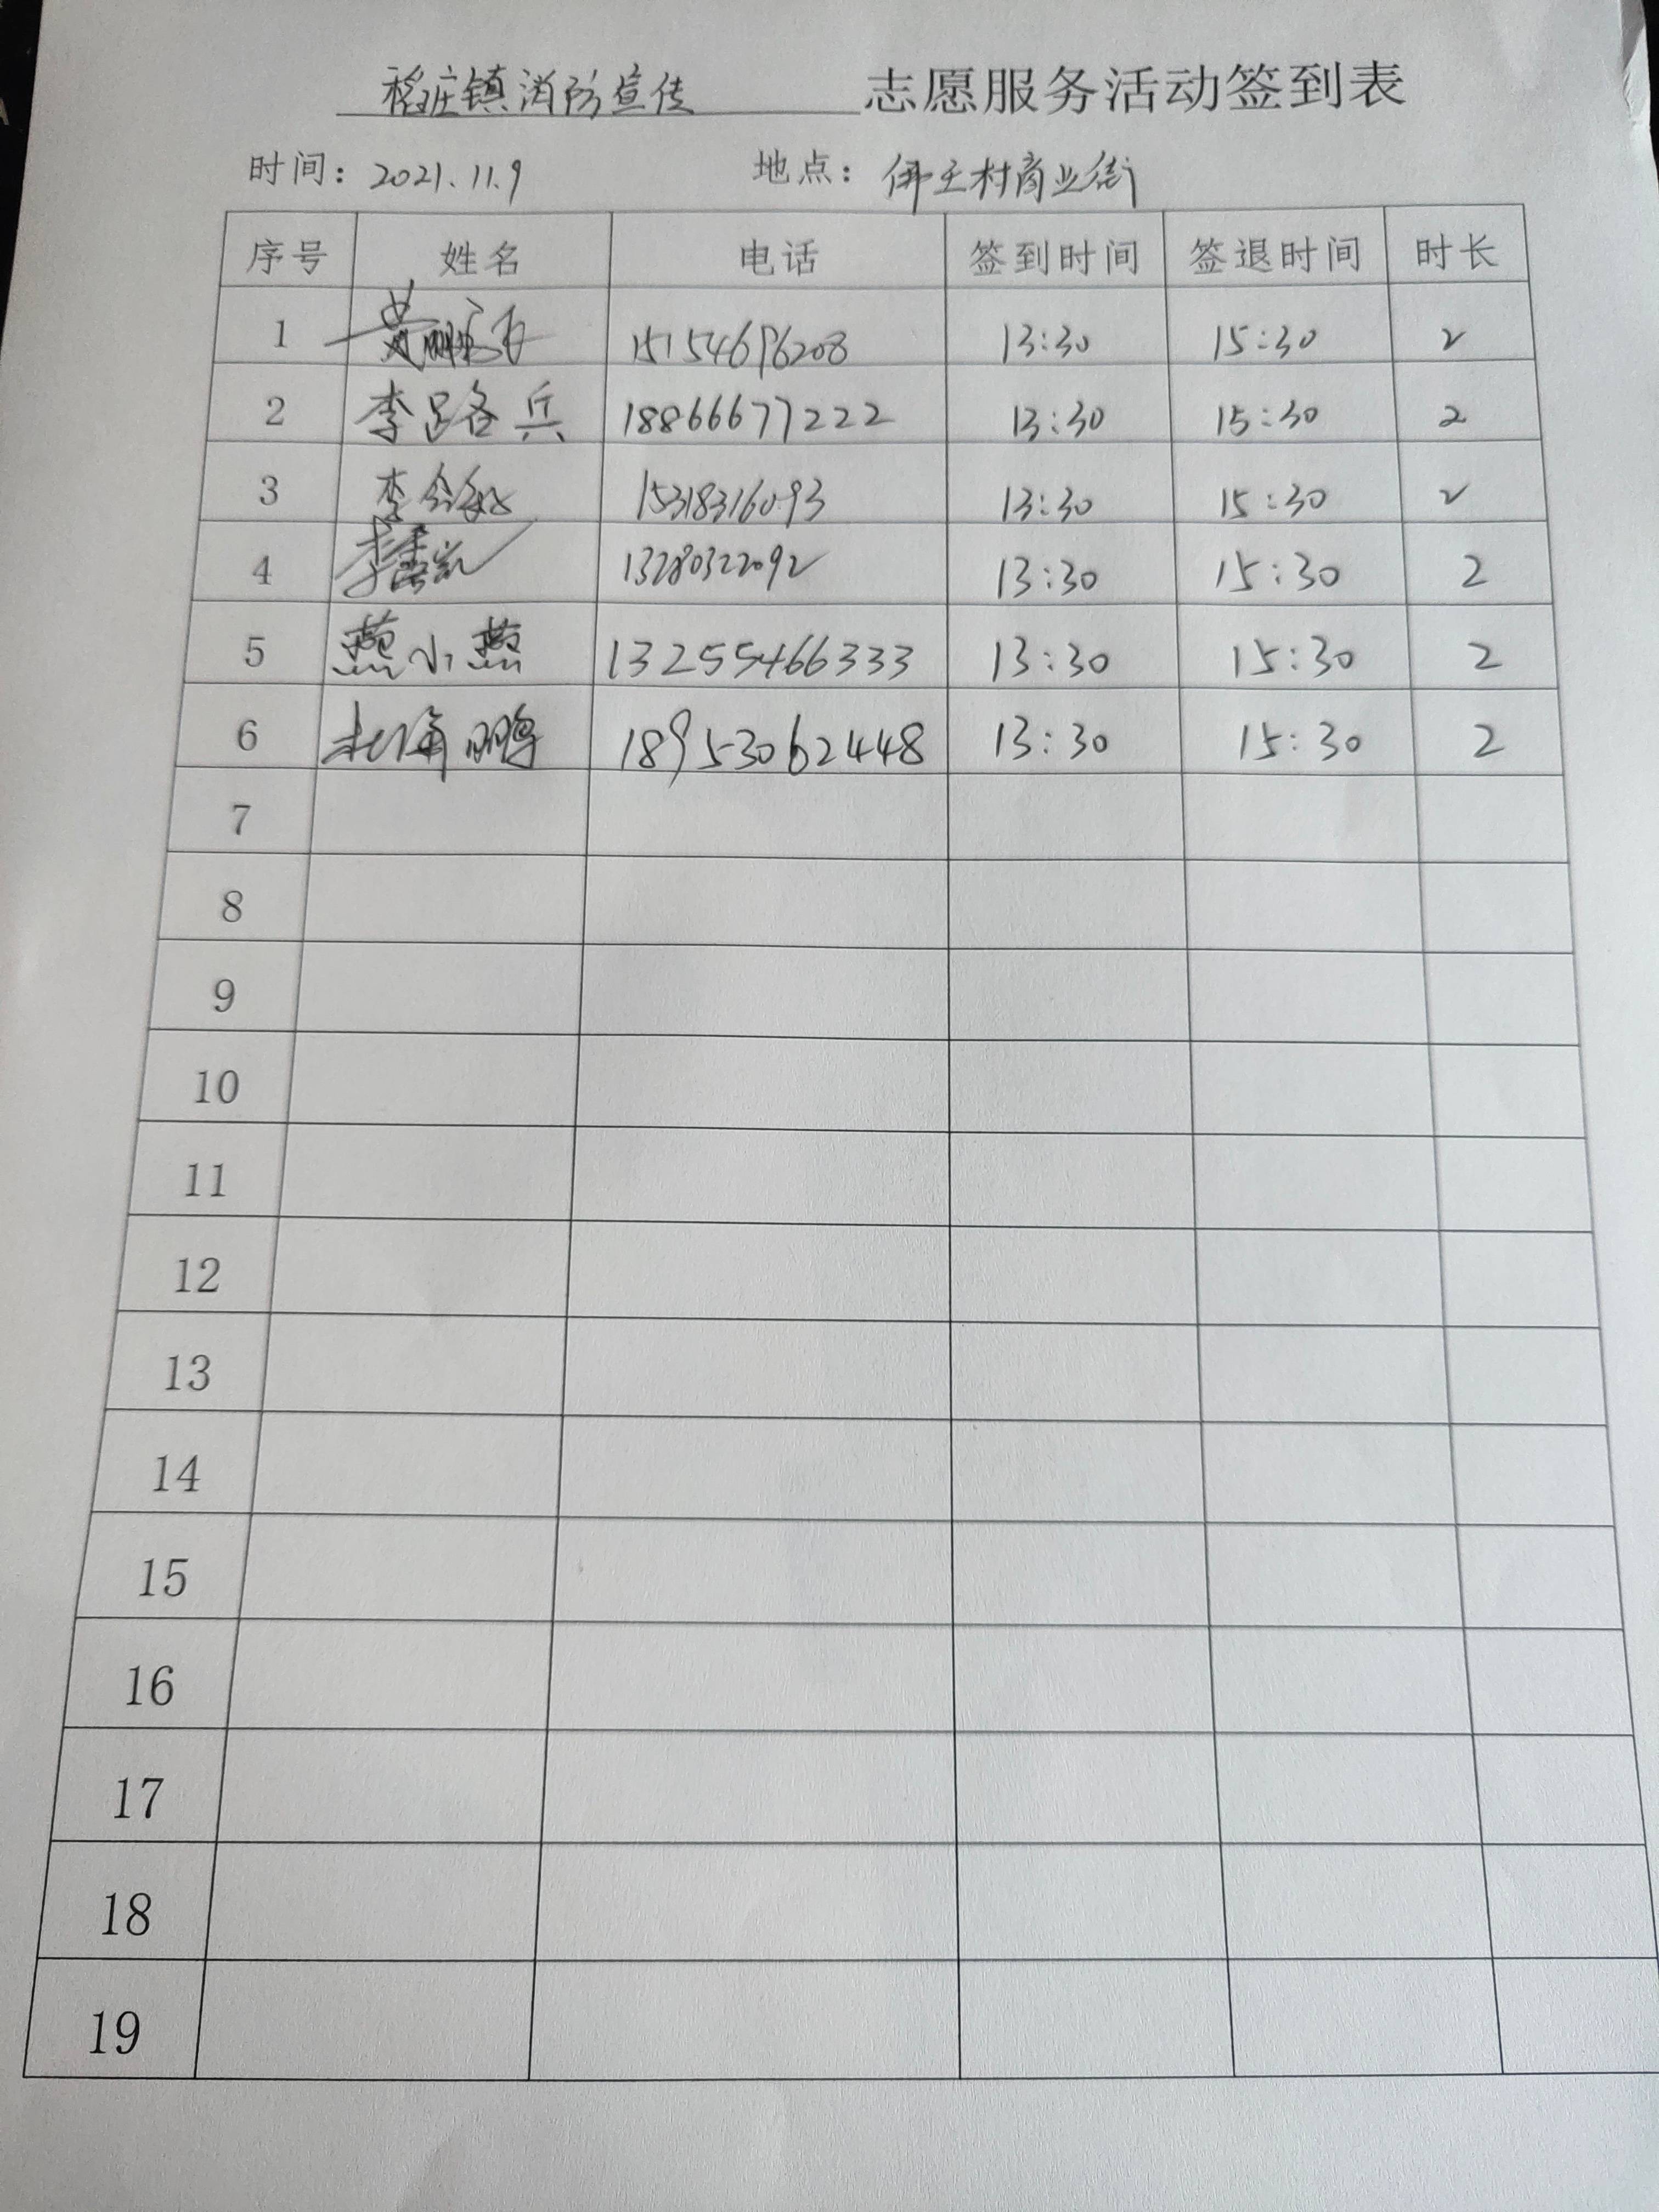 稻庄镇消防宣传 志愿服务活动签到表
时间：2021.11.9 地点：佛王村商业街
序号 姓名 电话 签到时间 签退时间 时长
1 15154696208 13:30 15:30 2
2 李路兵 18866677222 13:30 15:30 2
3 李 15318316093 13:30 15:30 2
4 13280322092 13:30 15:30 2
5 燕小燕 13255466333 13:30 15:30 2
6 鹏 18953062448 13:30 15:30 2
7
8
9
10
11
12
13
14
15
16
17
18
19